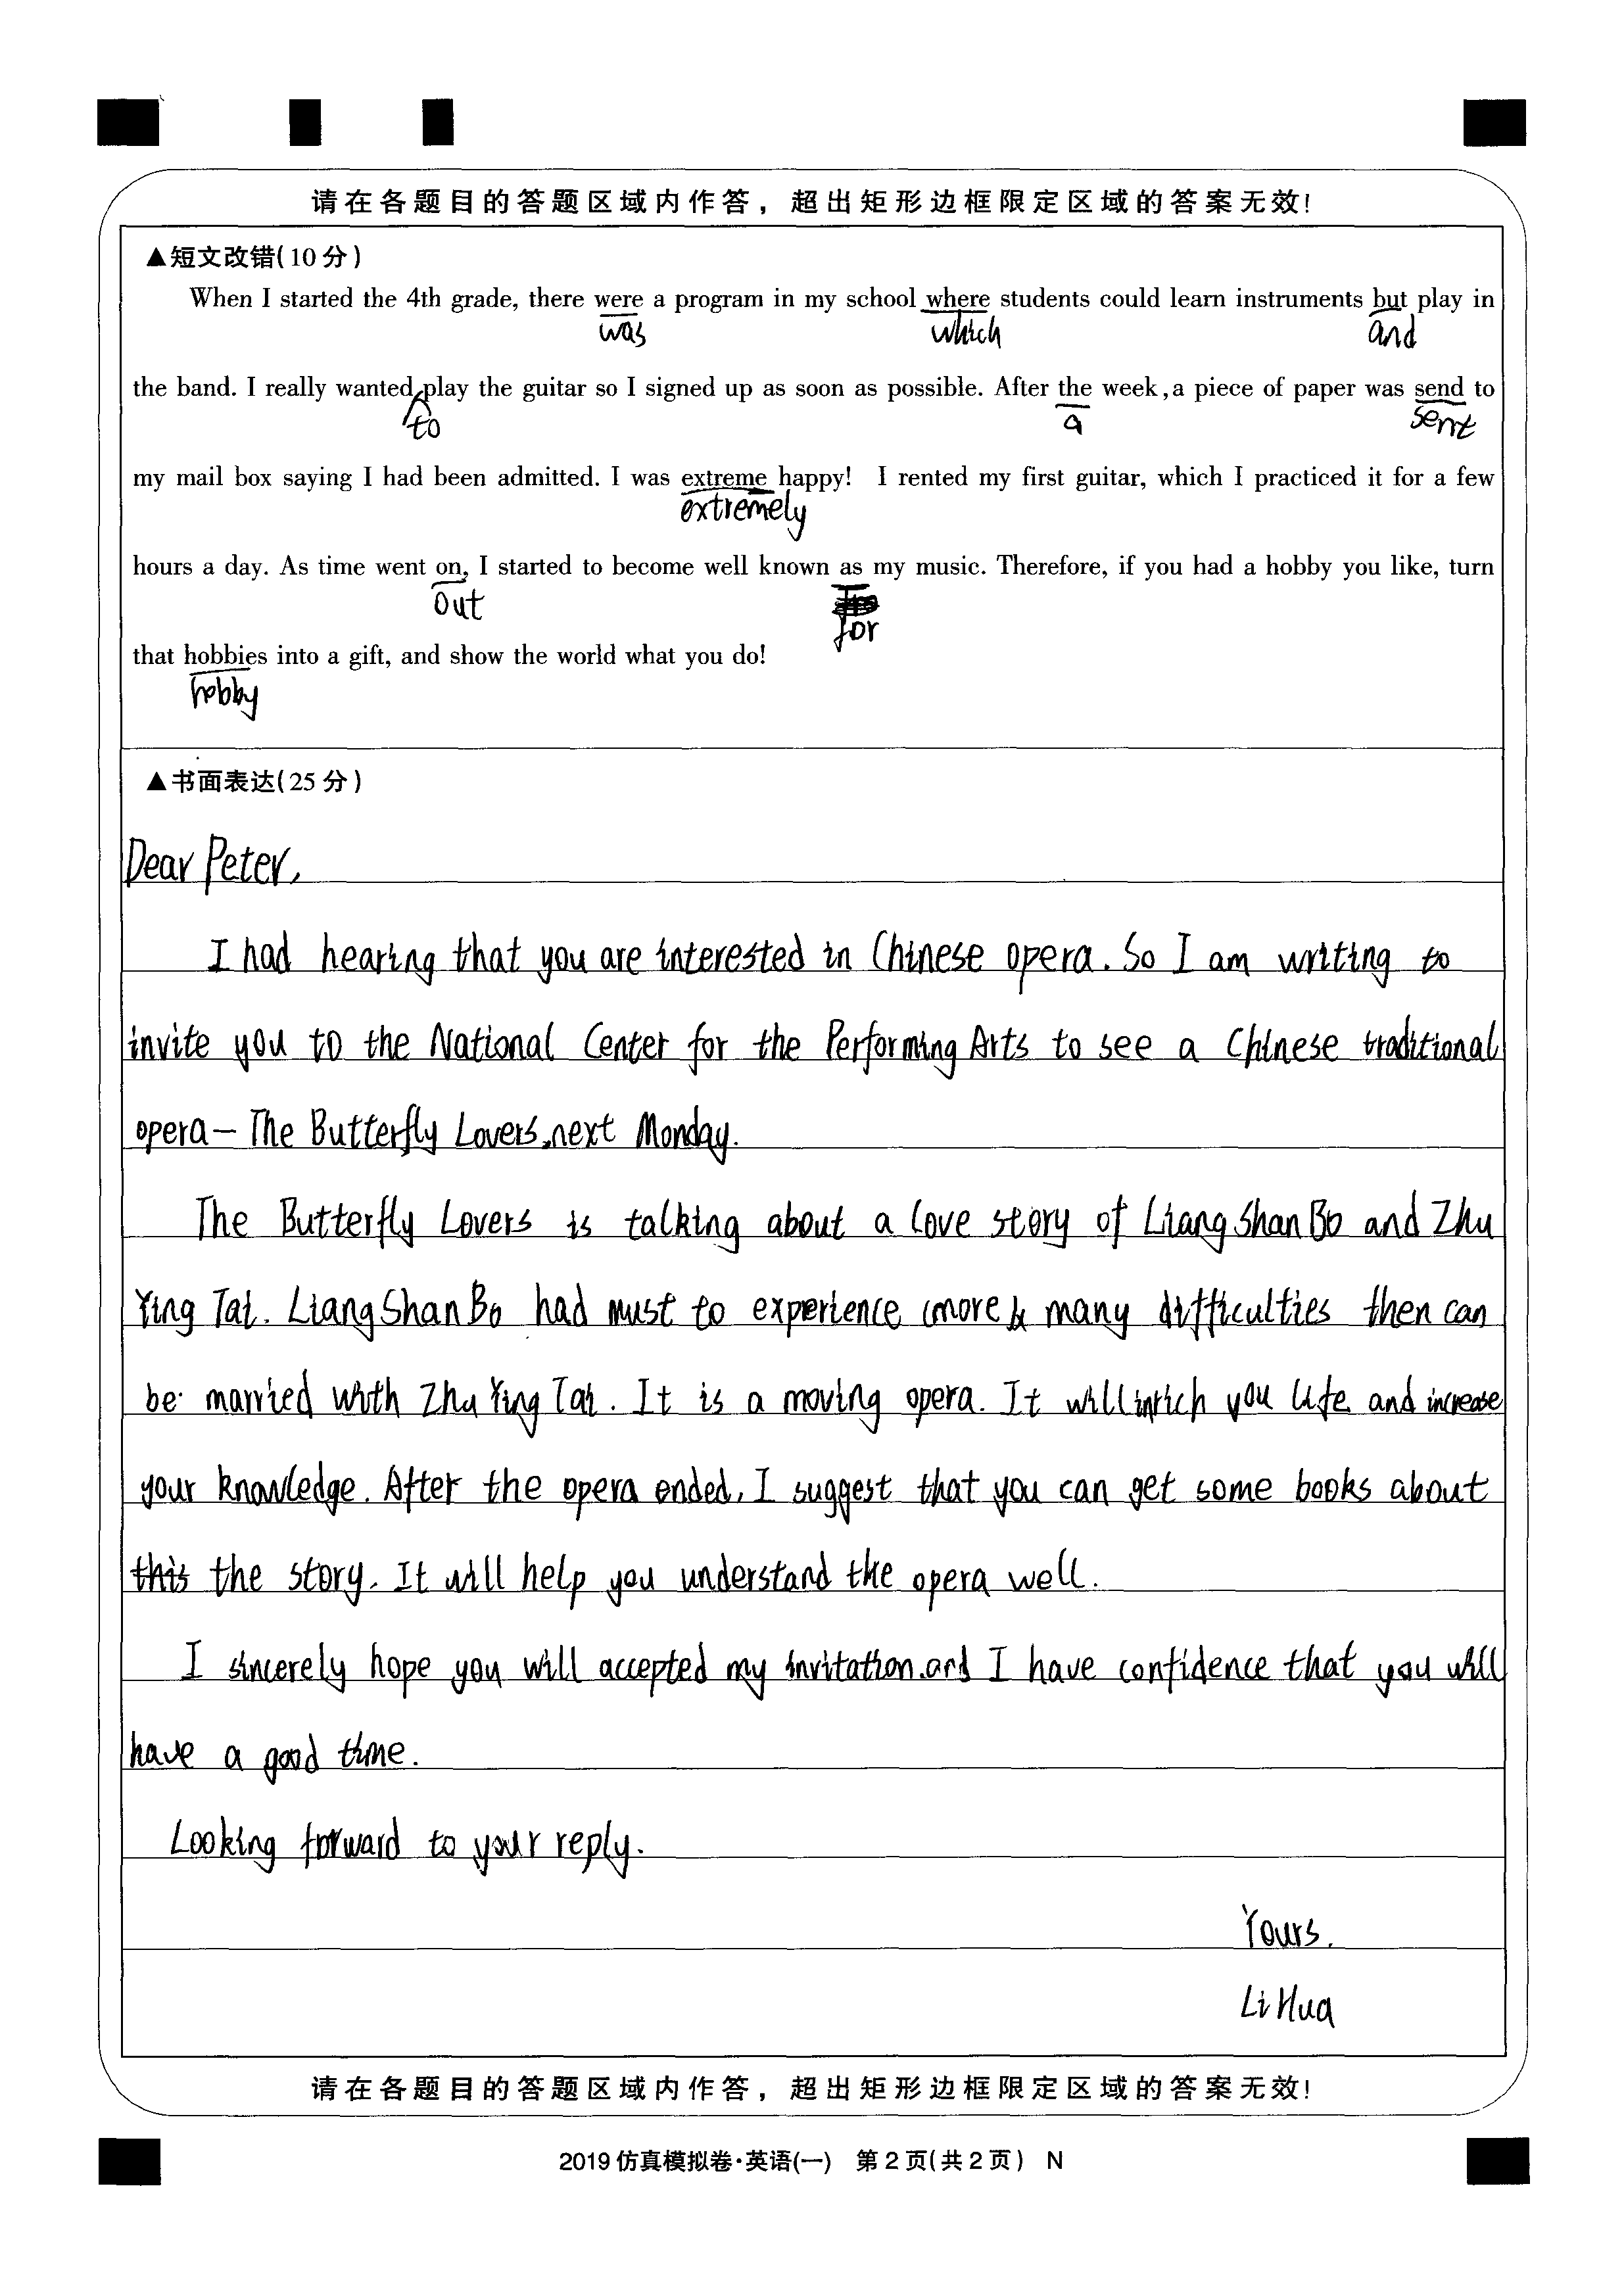 请在各题目的答题区域内作答，超出矩形边框限定区域的答案无效!
▲短文改错(10分)
When I started the 4th grade, there were a program in my school where students could learn instruments but play in
was which and
the band. I really wanted play the guitar so I signed up as soon as possible. After the week,a piece of paper was send to
to a sent
my mail box saying I had been admitted. I was extreme happy! I rented my first guitar, which I practiced it for a few
extremely
hours a day. As time went on, I started to become well known as my music. Therefore, if you had a hobby you like, turn
out for
that hobbies into a gift, and show the world what you do!
hobby
▲书面表达(25分)
Dear Peter,
I had hearing that you are interested in Chinese opera. So I am writing to
invite you to the National Center for the Performing Arts to see a Chinese traditional
opera— The Butterfly Lovers, next Monday.
The Butterfly Lovers is talking about a love story of Liang Shan Bo and Zhu
Ying Tai. Liang Shan Bo had must to experience more many difficulties then can
be married with Zhu Ying Tai. It is a moving opera. It will inrich you life and increase
your knowledge. After the opera ended, I suggest that you can get some books about
this the story. It will help you understand the opera well.
I sincerely hope you will accepted my invitation.and I have confidence that you will
have a good time.
Looking forward to your reply.
Yours.
Li Hua
请在各题目的答题区域内作答，超出矩形边框限定区域的答案无效!
2019仿真模拟卷·英语(一) 第2页(共2页) N